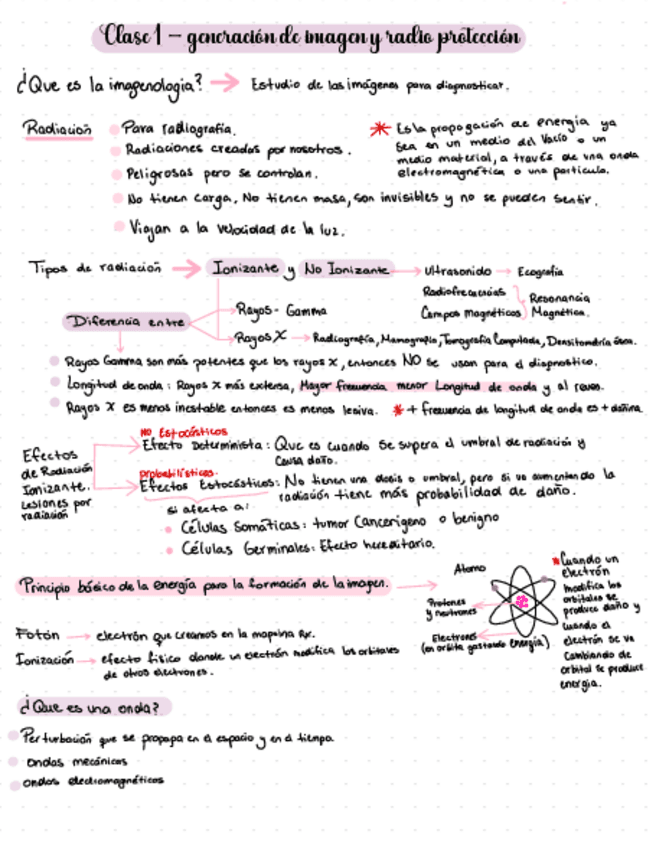 Clase 1 – generación de imagen y radio protección
¿Que es la imagenologia? → Estudio de las imágenes para diagnosticar.
Radiación
Para radiografía.
Radiaciones creadas por nosotros.
Peligrosas pero se controlan.
No tienen carga, No tienen masa, son invisibles y no se pueden sentir.
Viajan a la velocidad de la luz.
* Es la propagación de energía ya
sea en un medio del vacío o un
medio material, a través de una onda
electromagnética o una partícula.
Tipos de radiación → Ionizante y No Ionizante → Ultrasonido → Ecografía
Radiofrecuencias
Campos Magnéticos
Resonancia
Magnética.
Diferencia entre
Rayos - Gamma
Rayos X → Radiografía, Mamografía, Tomografía Computada, Densitometría ósea.
Rayos Gamma son más potentes que los rayos x, entonces NO se usan para el diagnostico.
Longitud de onda: Rayos x más extensa, Mayor frecuencia menor Longitud de onda y al reves.
Rayos X es menos inestable entonces es menos lesiva. * + frecuencia de longitud de onda es + dañina.
Efectos
de Radiación
Ionizante.
Lesiones por
radiación
No Estocásticos
Efecto Determinista: Que es cuando se supera el umbral de radiación y
causa daño.
probabilísticos.
Efectos Estocásticos: No tienen una dosis o umbral, pero si va aumentando la
radiación tiene más probabilidad de daño.
si afecta a:
Células Somáticas: tumor Cancerigeno o benigno
Células Germinales: Efecto hereditario.
Principio básico de la energía para la formación de la imagen.
Atomo
Protones
y neutrones
Electrones
(en orbita gastando energía)
* Cuando un
electrón
modifica los
orbitales se
produce daño y
cuando el
electrón se va
cambiando de
orbital se produce
energia.
Fotón → electrón que creamos en la maquina Rx.
Ionización → efecto físico donde un electrón modifica los orbitales
de otros electrones.
¿Que es una onda?
Perturbación que se propaga en el espacio y en el tiempo
ondas mecánicas
ondas electromagnéticas